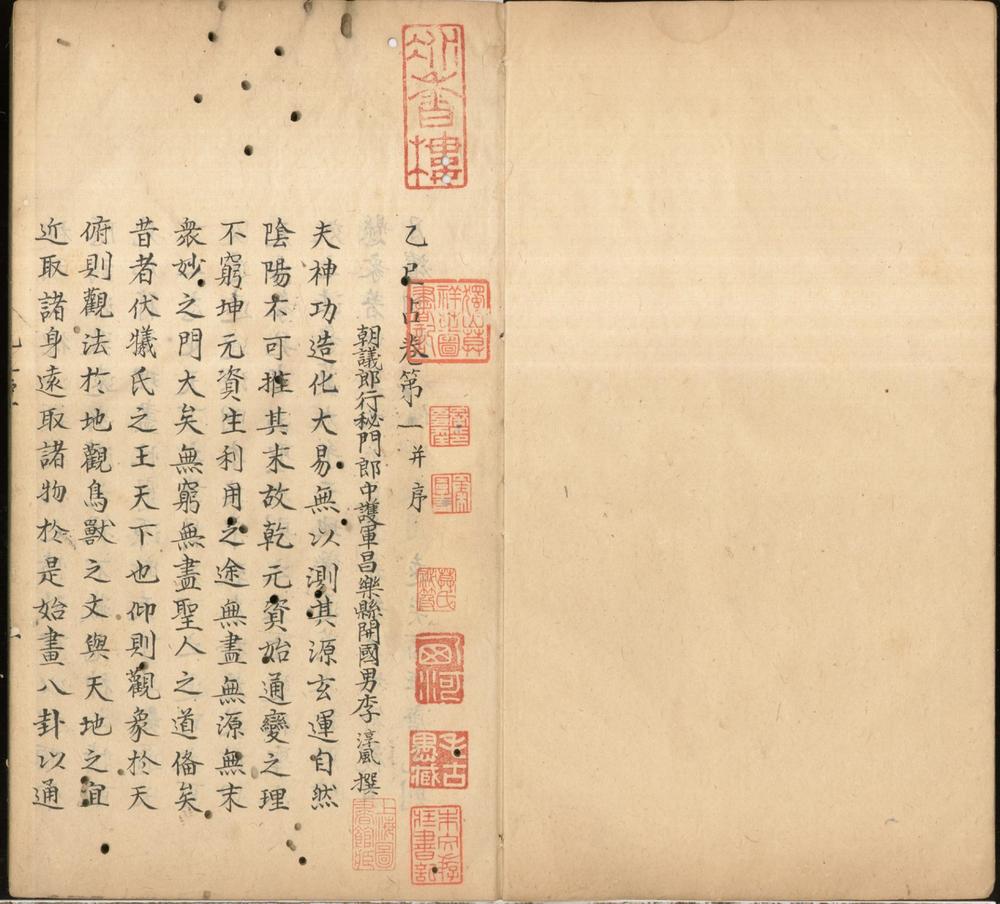 乙巳占卷第一 并序
朝議郎行秘閣郎中護軍昌樂縣開國男李淳風撰
夫神功造化大易無以測其源玄運自然
陰陽不可推其末故乾元資始通變之理
不窮坤元資生利用之途無盡無源無末
衆妙之門大矣無窮無盡聖人之道俻矣
昔者伏犧氏之王天下也仰則觀象於天
俯則觀法於地觀鳥獸之文與天地之宜
近取諸身遠取諸物於是始畫八卦以通
獨山莫祥芝圖書記
莫氏祕笈
上海圖書館藏